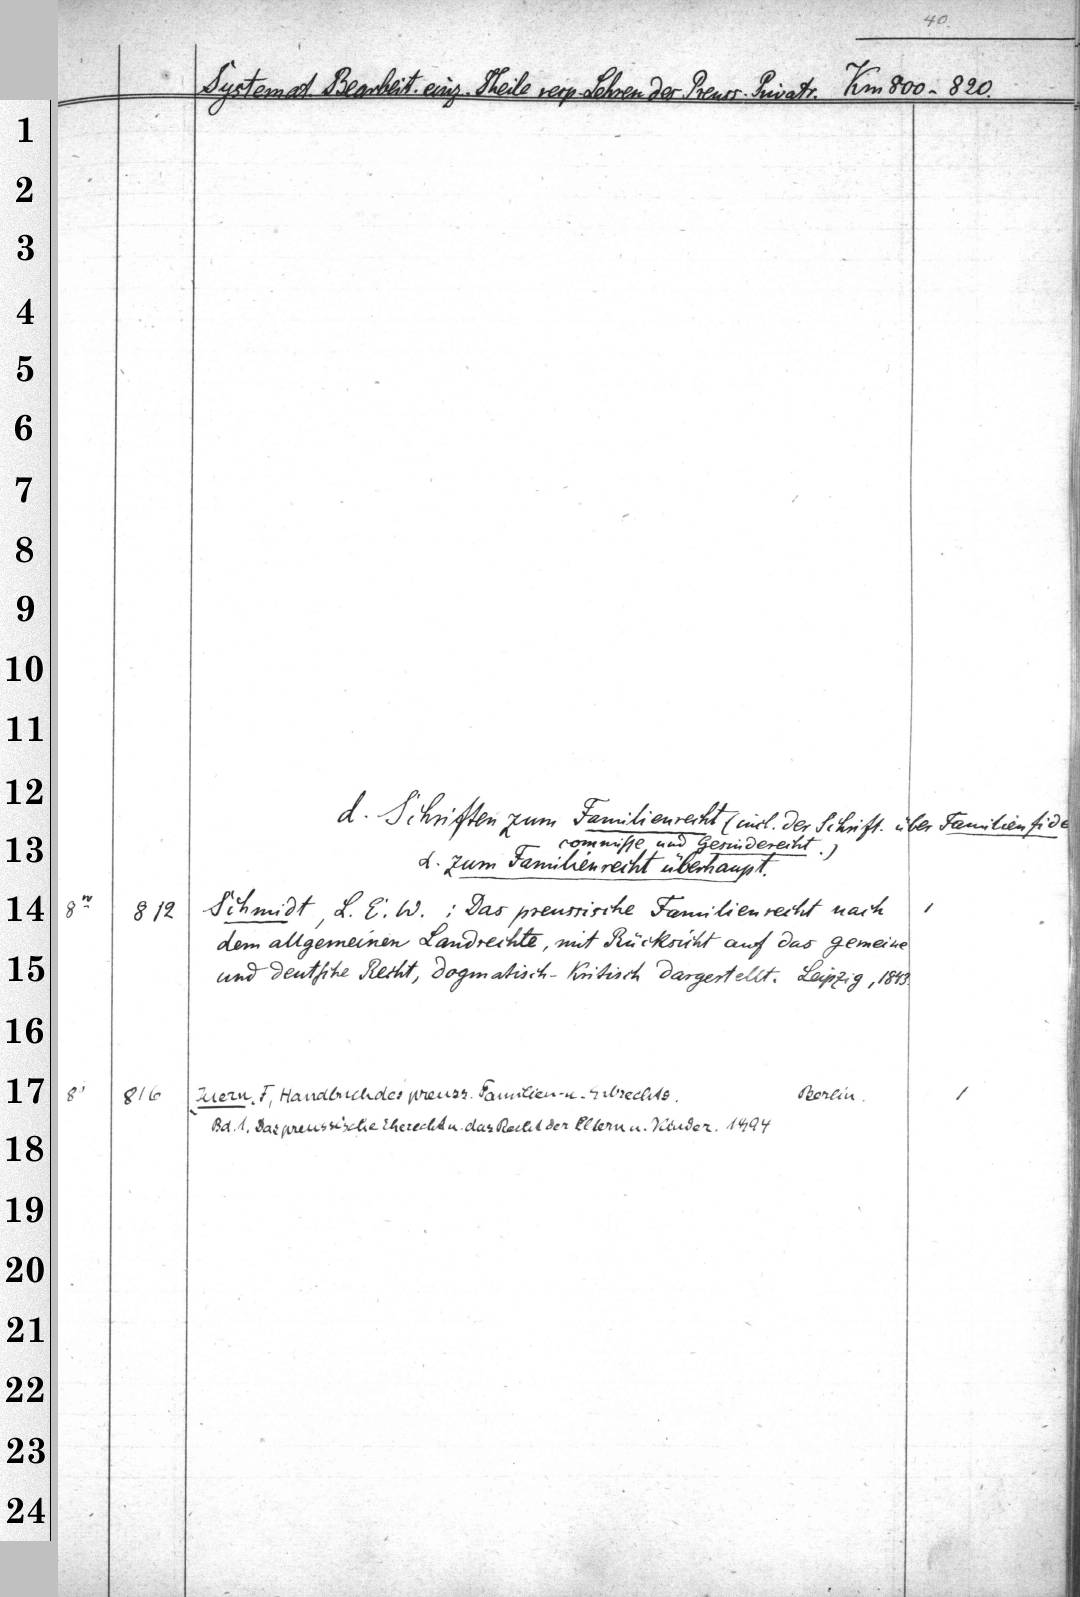 40.
Systemat. Bearbeit. einz. Theile resp. Lehren der Preuss. Privatr. Km 800 - 820.
1
2
3
4
5
6
7
8
9
10
11
12
d. Schriften zum Familienrecht (incl. der Schrift. über Familienfide
13
commisse und Gesinderecht.)
α. zum Familienrecht überhaupt.
14 8° 812 Schmidt, L. E. W. : Das preussische Familienrecht nach 1
dem allgemeinen Landrechte, mit Rücksicht auf das gemeine
15 und deutsche Recht, dogmatisch-kritisch dargestellt. Leipzig, 1843.
16
17 8° 816 F, Handbuch des preuss. Familien- u. Erbrechts. Berlin. 1
Bd. 1. Das preussische Eherecht u. das Recht der Eltern u. Kinder. 1894
18
19
20
21
22
23
24